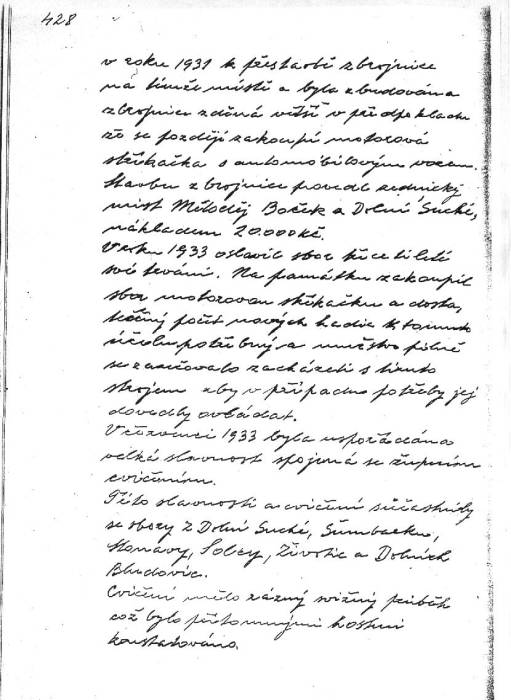 428
v roku 1931 k přestavbě zbrojnice
na tímže místě a byla zbudována
zbrojnice zděná větší v předpokladu
že se pozdějí zakoupí motorová
stříkačka s automobilovým vozem.
Stavbu zbrojnice provedl zednický
mist Mětoděj Boček z Dolní Suché,
nákladem 20.000 kč.
V roku 1933 oslavil sbor třicetileté
své trvání. Na památku zakoupil
sbor motorovou stříkačku a dosta,
tečný počet nových hadic k tomuto
účelu potřebný a mužstvo pilně
se zacvičovalo zacházeti s tímto
strojem aby v případu potřeby jej
dovedly ovládat.
V červenci 1933 byla uspořádána
velká slavnost spojená se župním
cvičením.
Této slavnosti a cvičení súčastnily
se sbory z Dolní Suché, Šumbarku,
Stonavy, Solcy, Životic a Dolních
Bludovic.
Cvičení mělo rázný svižný průběh
což bylo přítomnými hostmi
konstatováno.